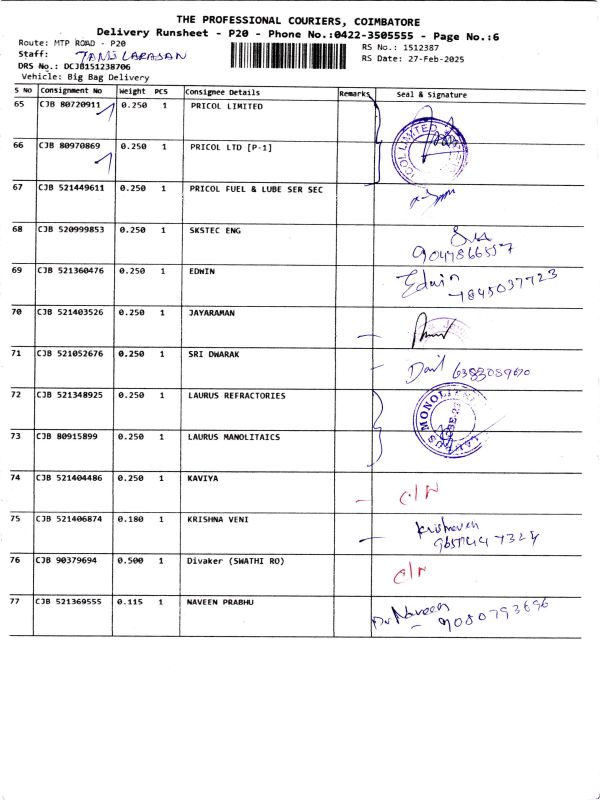 THE PROFESSIONAL COURIERS, COIMBATORE
Delivery Runsheet - P20 - Phone No.:0422-3505555 - Page No.:6
Route: MTP ROAD - P20
RS No.: 1512387
Staff: TAMILARASAN
RS Date: 27-Feb-2025
DRS No.: DCJB151238706
Vehicle: Big Bag Delivery
S No Consignment No Weight PCS Consignee Details Remarks Seal & Signature
65 CJB 80720911 0.250 1 PRICOL LIMITED
66 CJB 80970869 0.250 1 PRICOL LTD [P-1]
67 CJB 521449611 0.250 1 PRICOL FUEL & LUBE SER SEC
68 CJB 520999853 0.250 1 SKSTEC ENG
69 CJB 521360476 0.250 1 EDWIN Edwin 7845037723
70 CJB 521403526 0.250 1 JAYARAMAN
71 CJB 521052676 0.250 1 SRI DWARAK
72 CJB 521348925 0.250 1 LAURUS REFRACTORIES
73 CJB 80915899 0.250 1 LAURUS MANOLITAICS
74 CJB 521404486 0.250 1 KAVIYA
75 CJB 521406874 0.180 1 KRISHNA VENI
76 CJB 90379694 0.500 1 Divaker (SWATHI RO)
77 CJB 521369555 0.115 1 NAVEEN PRABHU Naveen 9080793696